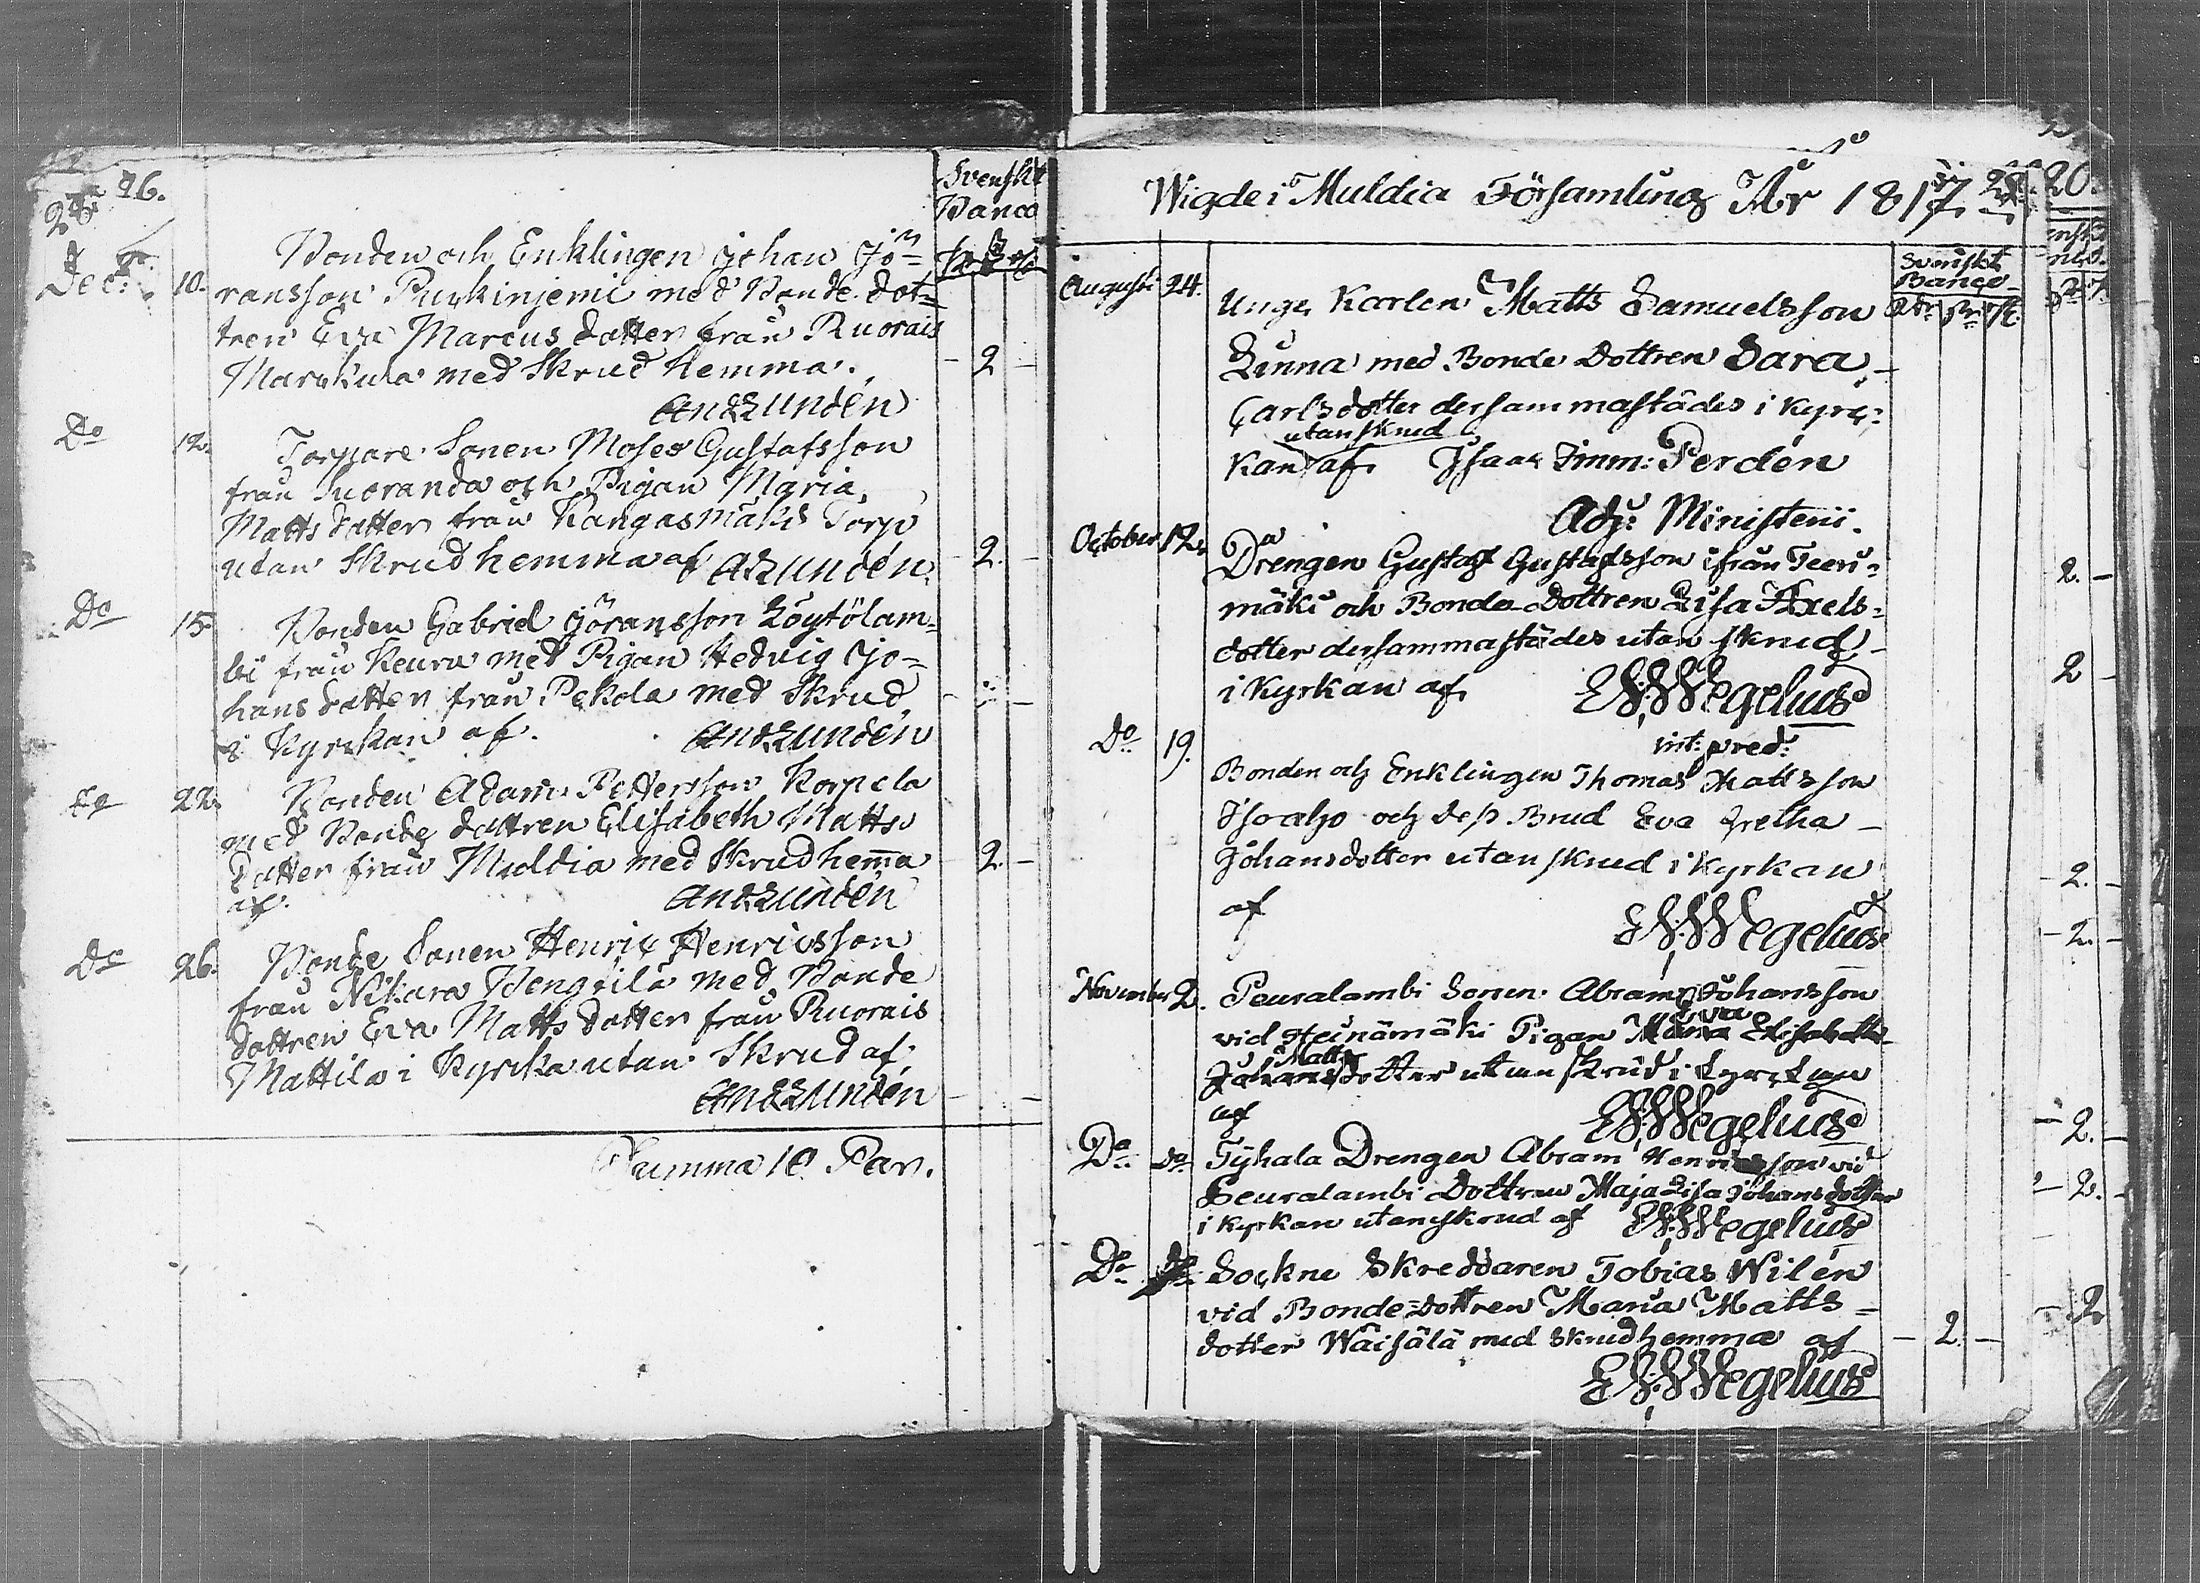 26.
Svenskt
Banco
Dec: 10. Bonden och Enklingen Johan Jö=
ransson Purkinjemi med Bonde dot=
tren Eva Marcus dotter från Ruorais
Marckula med Skrud hemma. - 2 -
And Lundén
Do 12. Torpare Sonen Moses Gustafsson
från Suoranda och Pigan Maria
Matts dotter från Kangasmäki Torp
utan Skrud hemma af A Lundén. 2. -
Do 15. Bonden Gabriel Jöransson Löytölam=
bi från Keuru med Pigan Hedvig Jo=
hans dotter från Pekola med Skrud
i Kyrckan af. And Lundén
Do 22. Bonden Adam Pettersson Korpela
med Bonde dottren Elisabeth Matts
dotter från Muldia med Skrud hemma - 2. -
af. And Lundén
Do 26. Bonde Sonen Henric Henricsson
från Nikara med Bonde
dottren Eva Matts dotter från Ruorais
Mattila i Kyrcka utan Skrud af
And Lundén
Summa 10 Par.
Wigde i Muldia Församling År 1817.
20.
Svenskt
Banco
Augusti 24. Unge Karlen Matts Samuelsson
Linna med Bonde Dottren Sara
Carlsdotter dersammastädes i Kyrc=
utan skrud
kan af Isaac Imm: Perdén
Adj: Ministerii.
October 12. Drengen Gustaf Gustafsson ifrån Teeri=
mäki och Bonde Dottren Lisa Axels=
dotter dersammastädes utan skrud
i Kyrkan af Wegelius
int: pred:
Do 19. Bonden och Enklingen Thomas Mattsson
Isoaho och dess Brud Eva Gretha
Johansdotter utan skrud i Kyrkan
af Wegelius
November 2. Peuralambi Sonen Abram Johansson
Eva
vid Heinämäki Pigan Maria Elisabeth
Matts
Johansdotter utan skrud i Kyrckan
af Wegelius
Do Do Tyhala Drengen Abram Henricsson vid
Peuralambi Dottren Maja Lisa Johansdotter
i Kyrkan utan skrud af Wegelius
Do Do Sockne Skreddaren Tobias Wilén
vid Bonde=dottren Maria Matts=
dotter Wäisälä med Skrud hemma af - 2. -
Wegelius
2. -
2 -
- 2. -
- 2. -
- 2. -
- 2. -
- 2